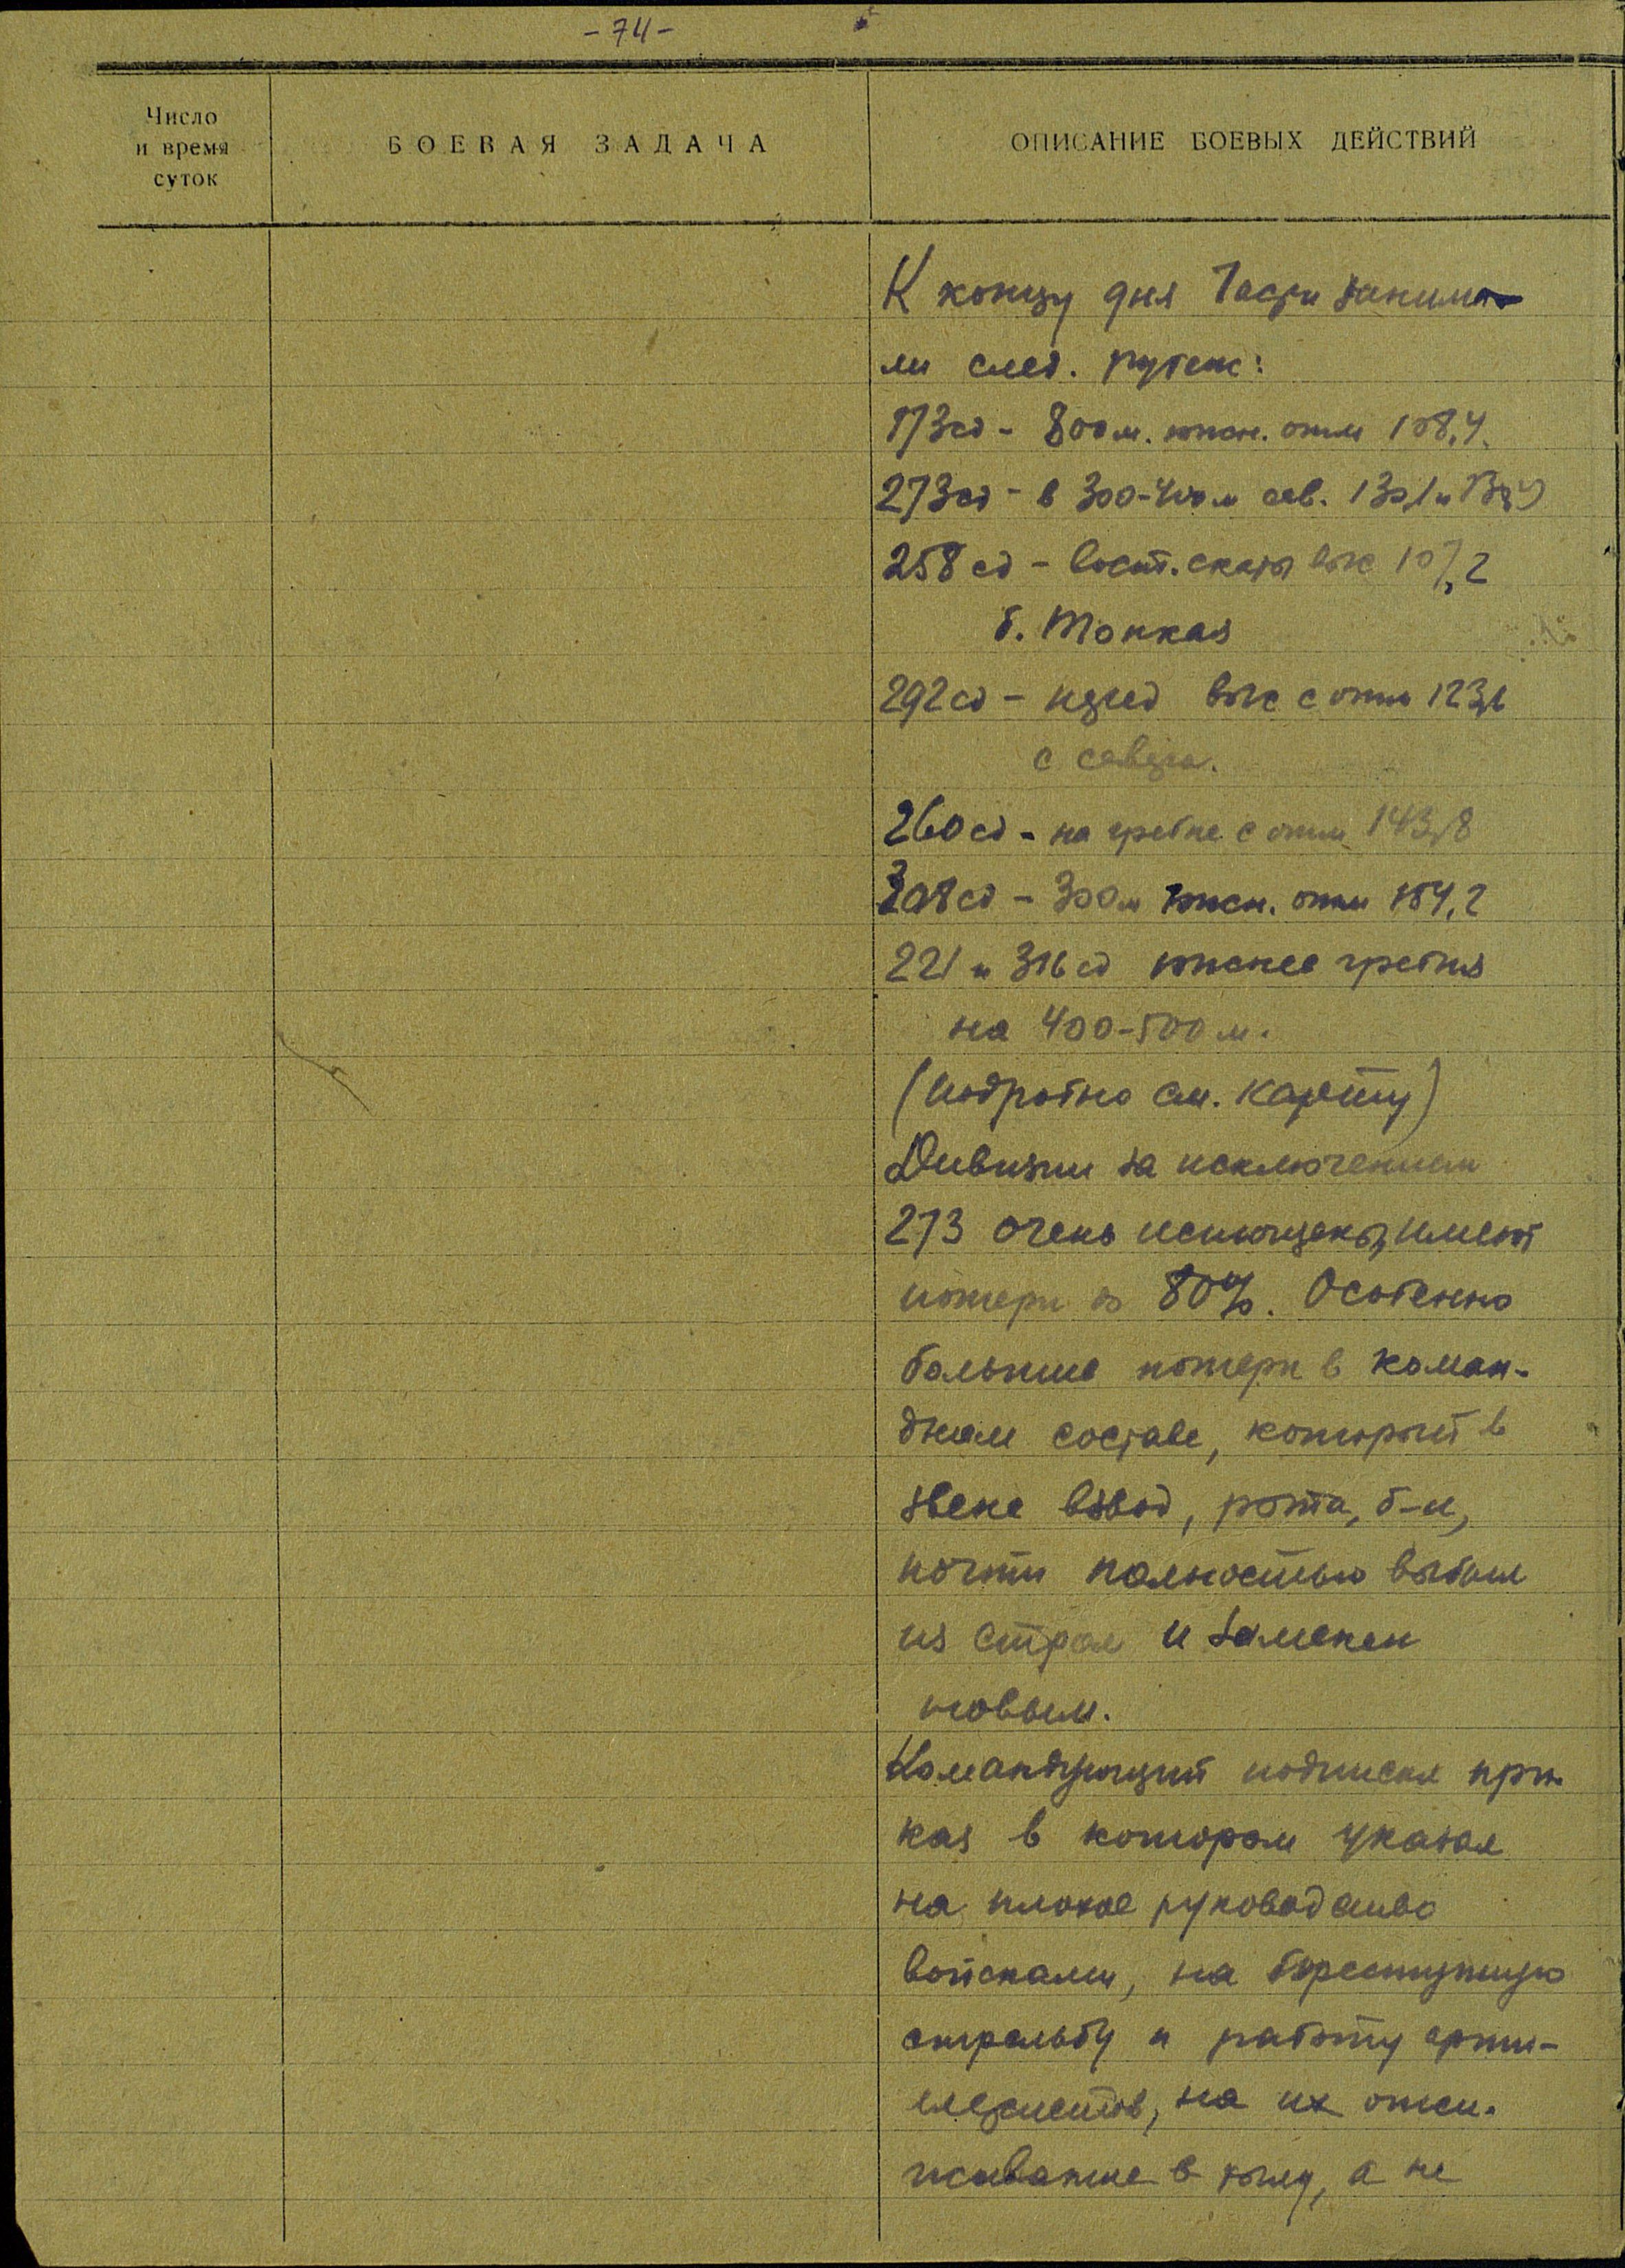 - 74 -
Число
и время
суток
БОЕВАЯ ЗАДАЧА
ОПИСАНИЕ БОЕВЫХ ДЕЙСТВИЙ
К концу дня Части занима
ли след. рубеж:
173сд - 800 м. южн. отм 108,4.
273сд - в 300-400 м сев. 130,1 и
258 сд - вост. скаты выс 107,2
б. Тонкая
292 сд - перед выс с отм 123,6
с севера.
260 сд - на гребне с отм 143,8
308 сд - 300 м южн. отм 154,2
221 и 316 сд южнее гребня
на 400-500 м.
(подробно см. карту)
Дивизии за исключением
273 очень истощены, имеют
потери до 80%. Особенно
большие потери в коман-
дном составе, который в
звене взвод, рота, б-н,
почти полностью выбыл
из строя и заменен
новым.
Командующий подписал при
каз в котором указал
на плохое руководство
войсками, на
стрельбу и работу арти-
леристов, на их отси-
живание в тылу, а не